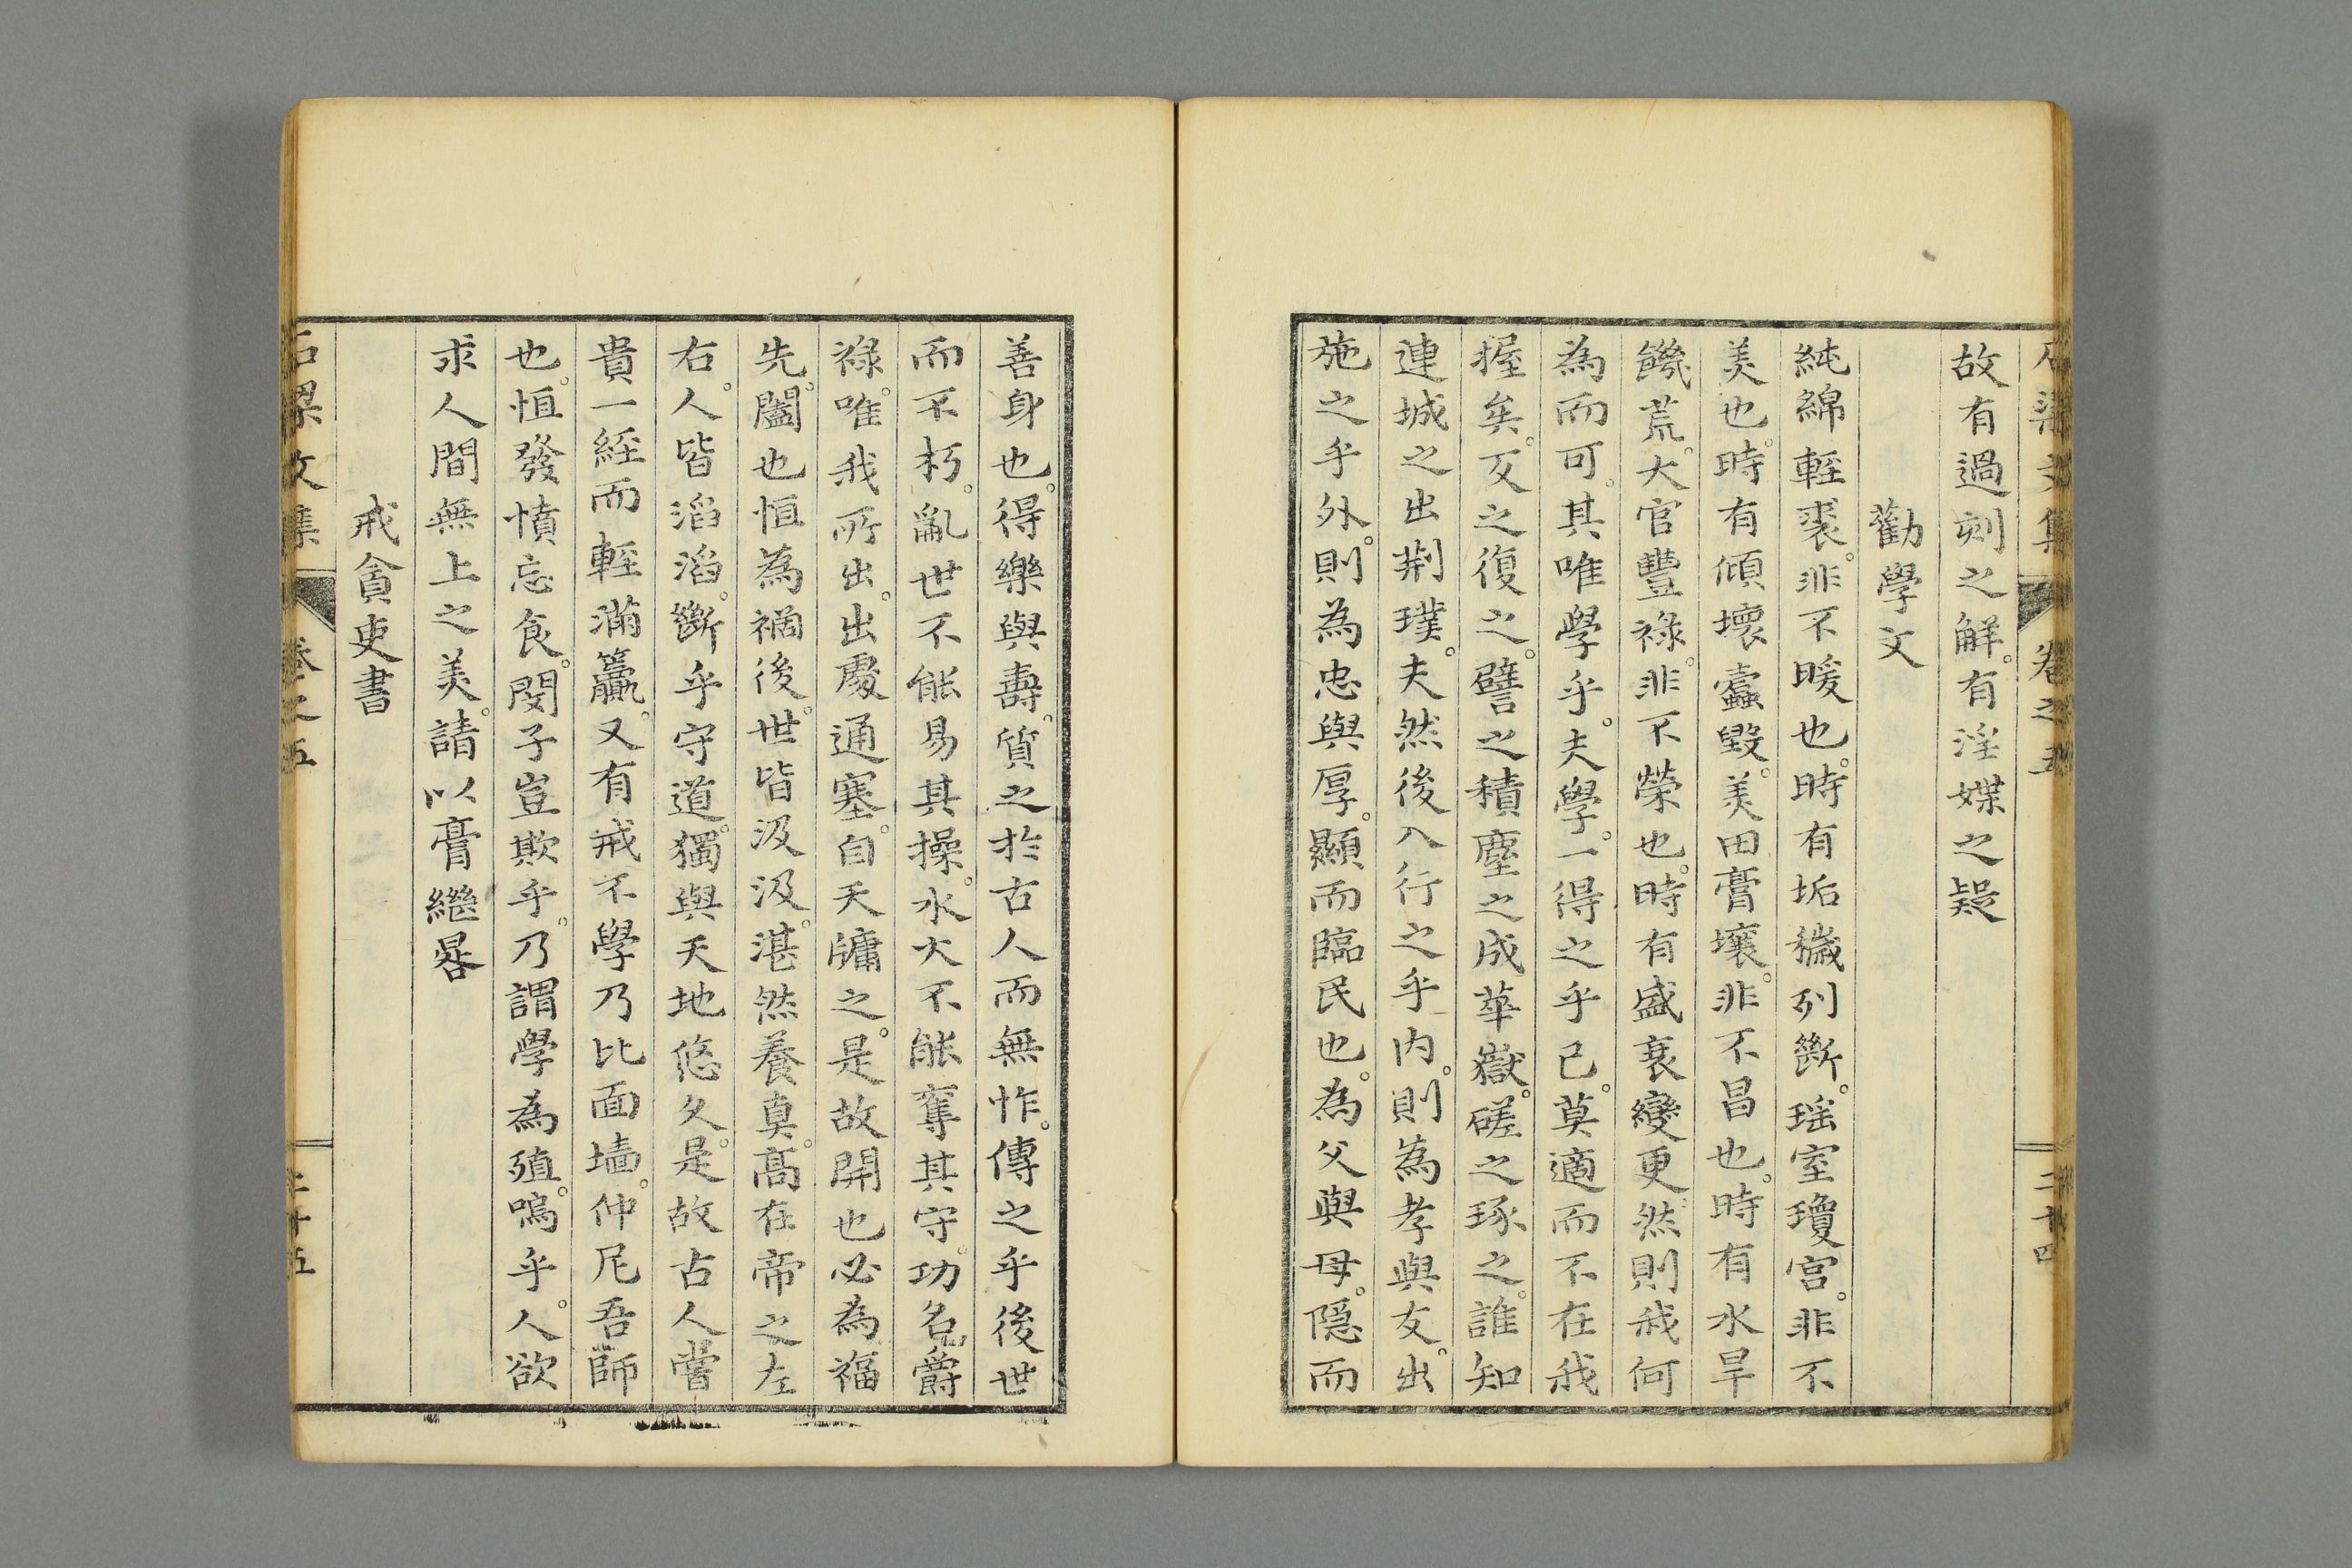 石梁文集 卷之五 二十四
故有過刻之解。有淫媟之疑
勸學文
純綿輕裘。非不暖也。時有垢穢列斷。瑶室瓊宮。非不
美也。時有傾壞蠹毀。美田膏壤。非不昌也。時有水旱
饑荒。大官豐祿。非不榮也。時有盛衰變更。然則我何
為而可。其唯學乎。夫學。一得之乎已。莫適而不在我
握矣。反之復之。譬之積塵之成華嶽。磋之琢之。誰知
連城之出荆璞。夫然後入行之乎内。則為孝與友。出
施之乎外。則為忠與厚。顯而臨民也。為父與母。隱而
善身也。得樂與壽。質之於古人而無怍。傳之乎後世
而不朽。亂世不能易其操。水火不能奪其守。功名爵
祿。唯我所出。出處通塞。自天牖之。是故開也必為福
先。闔也恒為禍後。世皆汲汲。湛然養真。高在帝之左
右。人皆滔滔。斷乎守道。獨與天地悠久。是故古人嘗
貴一経而輕滿籯。又有戒不學乃比面墻。仲尼吾師
也。恒發憤忘食。閔子豈欺乎。乃謂學為殖。嗚乎。人欲
求人間無上之美。請以膏繼晷
戒貪吏書
石梁文集 卷之五 二十五